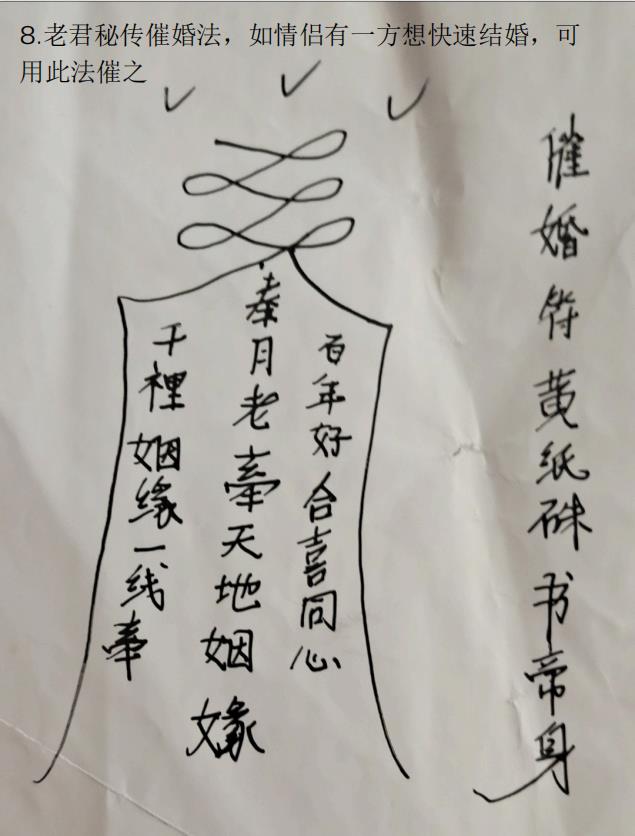 8.老君秘传催婚法，如情侣有一方想快速结婚，可
用此法催之
催婚符黄纸硃书帝身
百年好合喜同心
奉月老牵天地姻缘
千裡姻緣一线牵